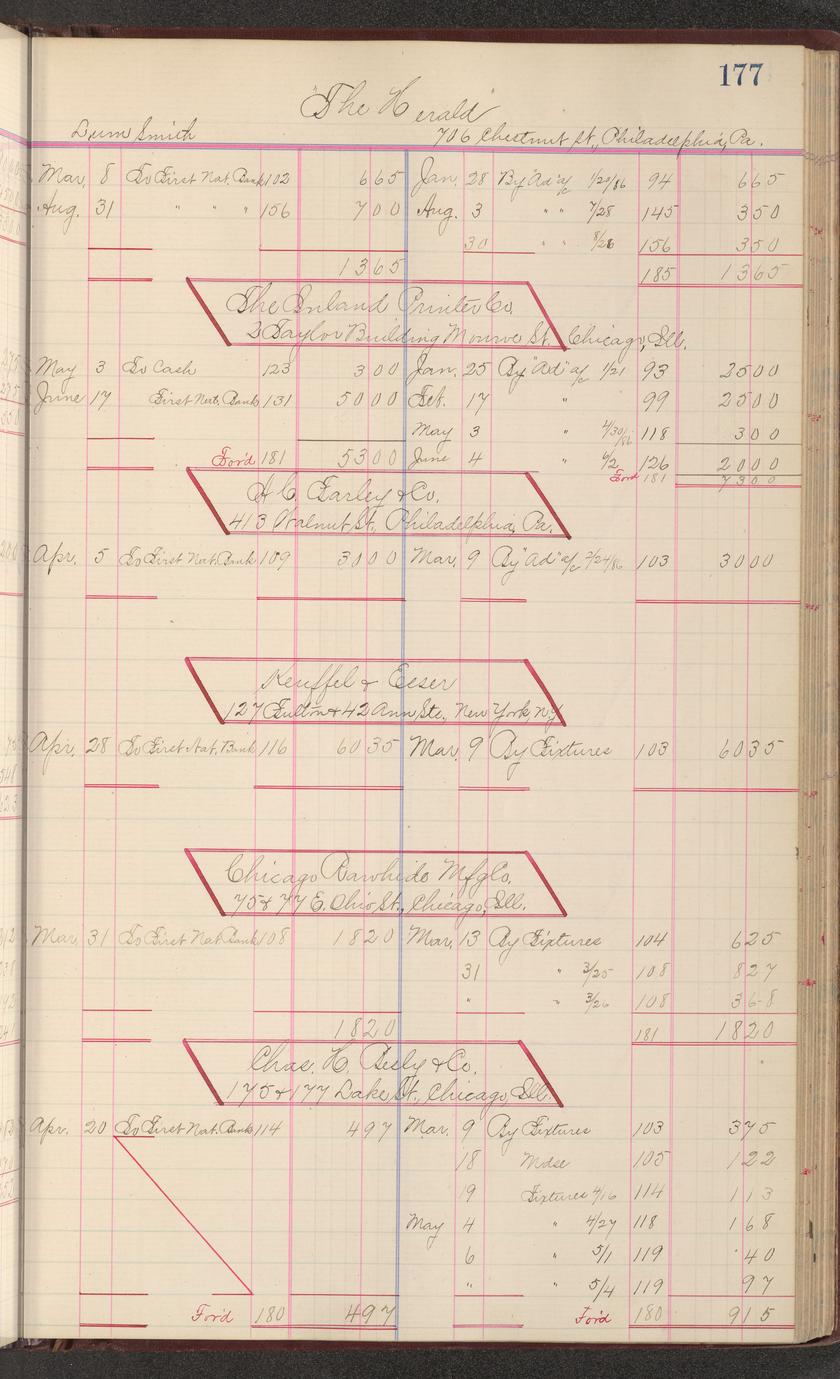 177
"The Herald"
Dum Smith 706 Chestnut St., Philadelphia, Pa.
Mar. 8 To First Nat. Bank 102 665 Jan. 28 By "Ad" a/c 1/20/86 94 665
Aug. 31 " " " 156 700 Aug. 3 " " 7/28 145 350
30 " " 8/28 156 350
1365 185 1365
The Inland Printer Co.
2 Taylor Building Monroe St. Chicago, Ill.
May 3 To Cash 123 300 Jan. 25 By "Ad" a/c 1/21 93 2500
June 17 First Nat. Bank 131 5000 Feb. 17 " 99 2500
May 3 " 4/30/86 118 300
For'd 181 5300 June 4 " 6/2 126 2000
For'd 181 7300
H. C. Earley & Co.
413 Walnut St. Philadelphia, Pa.
Apr. 5 To First Nat. Bank 109 3000 Mar. 9 By "Ad" a/c 2/24/86 103 3000
Keuffel & Esser
127 Fulton & 42 Ann Sts., New York, N.Y.
Apr. 28 To First Nat. Bank 116 6035 Mar. 9 By Fixtures 103 6035
Chicago Rawhide Mfg Co.
75 & 77 E. Ohio St., Chicago, Ill.
Mar. 31 To First Nat Bank 108 1820 Mar. 13 By Fixtures 104 625
31 " 3/25 108 827
" " 3/26 108 368
1820 181 1820
Chas. H. Besly & Co.
175 & 177 Lake St., Chicago, Ill.
Apr. 20 To First Nat. Bank 114 497 Mar. 9 By Fixtures 103 375
18 Mdse 105 122
19 Fixtures 4/16 114 113
May 4 " 4/27 118 168
6 " 5/1 119 40
" " 5/4 119 97
For'd 180 497 For'd 180 915